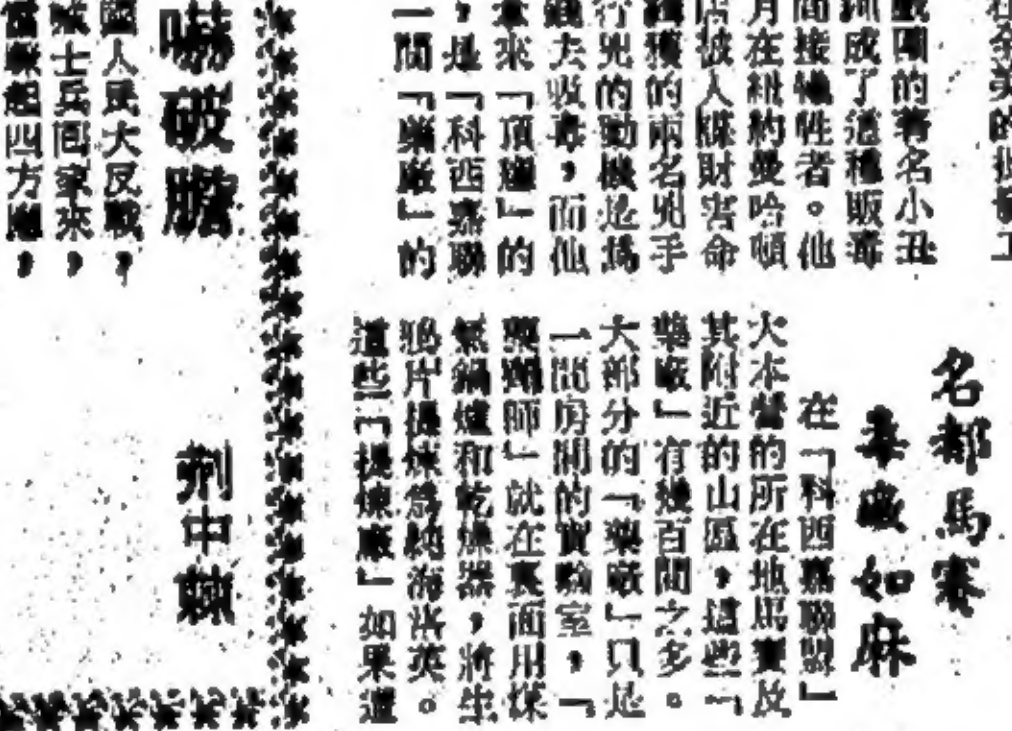 在余美的
戲團的著名小丑
就成了這種販毒
間接犧牲者。他
月在紐約曼哈頓
店被人謀財害命
緝獲的兩名兇手
行兇的動機是爲
錢去收毒,而他
意來「頂爐」的
,是「科西嘉聯
一間「藥廠」的
名都馬賽
毒廠如麻
在「科西嘉聯盟」
大本營的所在地馬賽及
其附近的山區,這些「
藥廠」有幾百間之多。
大部分的「藥廠」只是
一間房間的實驗室,「
藥劑師」就在裏面用煤
氣鍋爐和乾燥器,將生
鴉片提煉爲純海洛英。
這些「提煉廠」如果遭
嚇破膽
荊中棘
國人民大反戰,
士兵回家來,
起四方應,